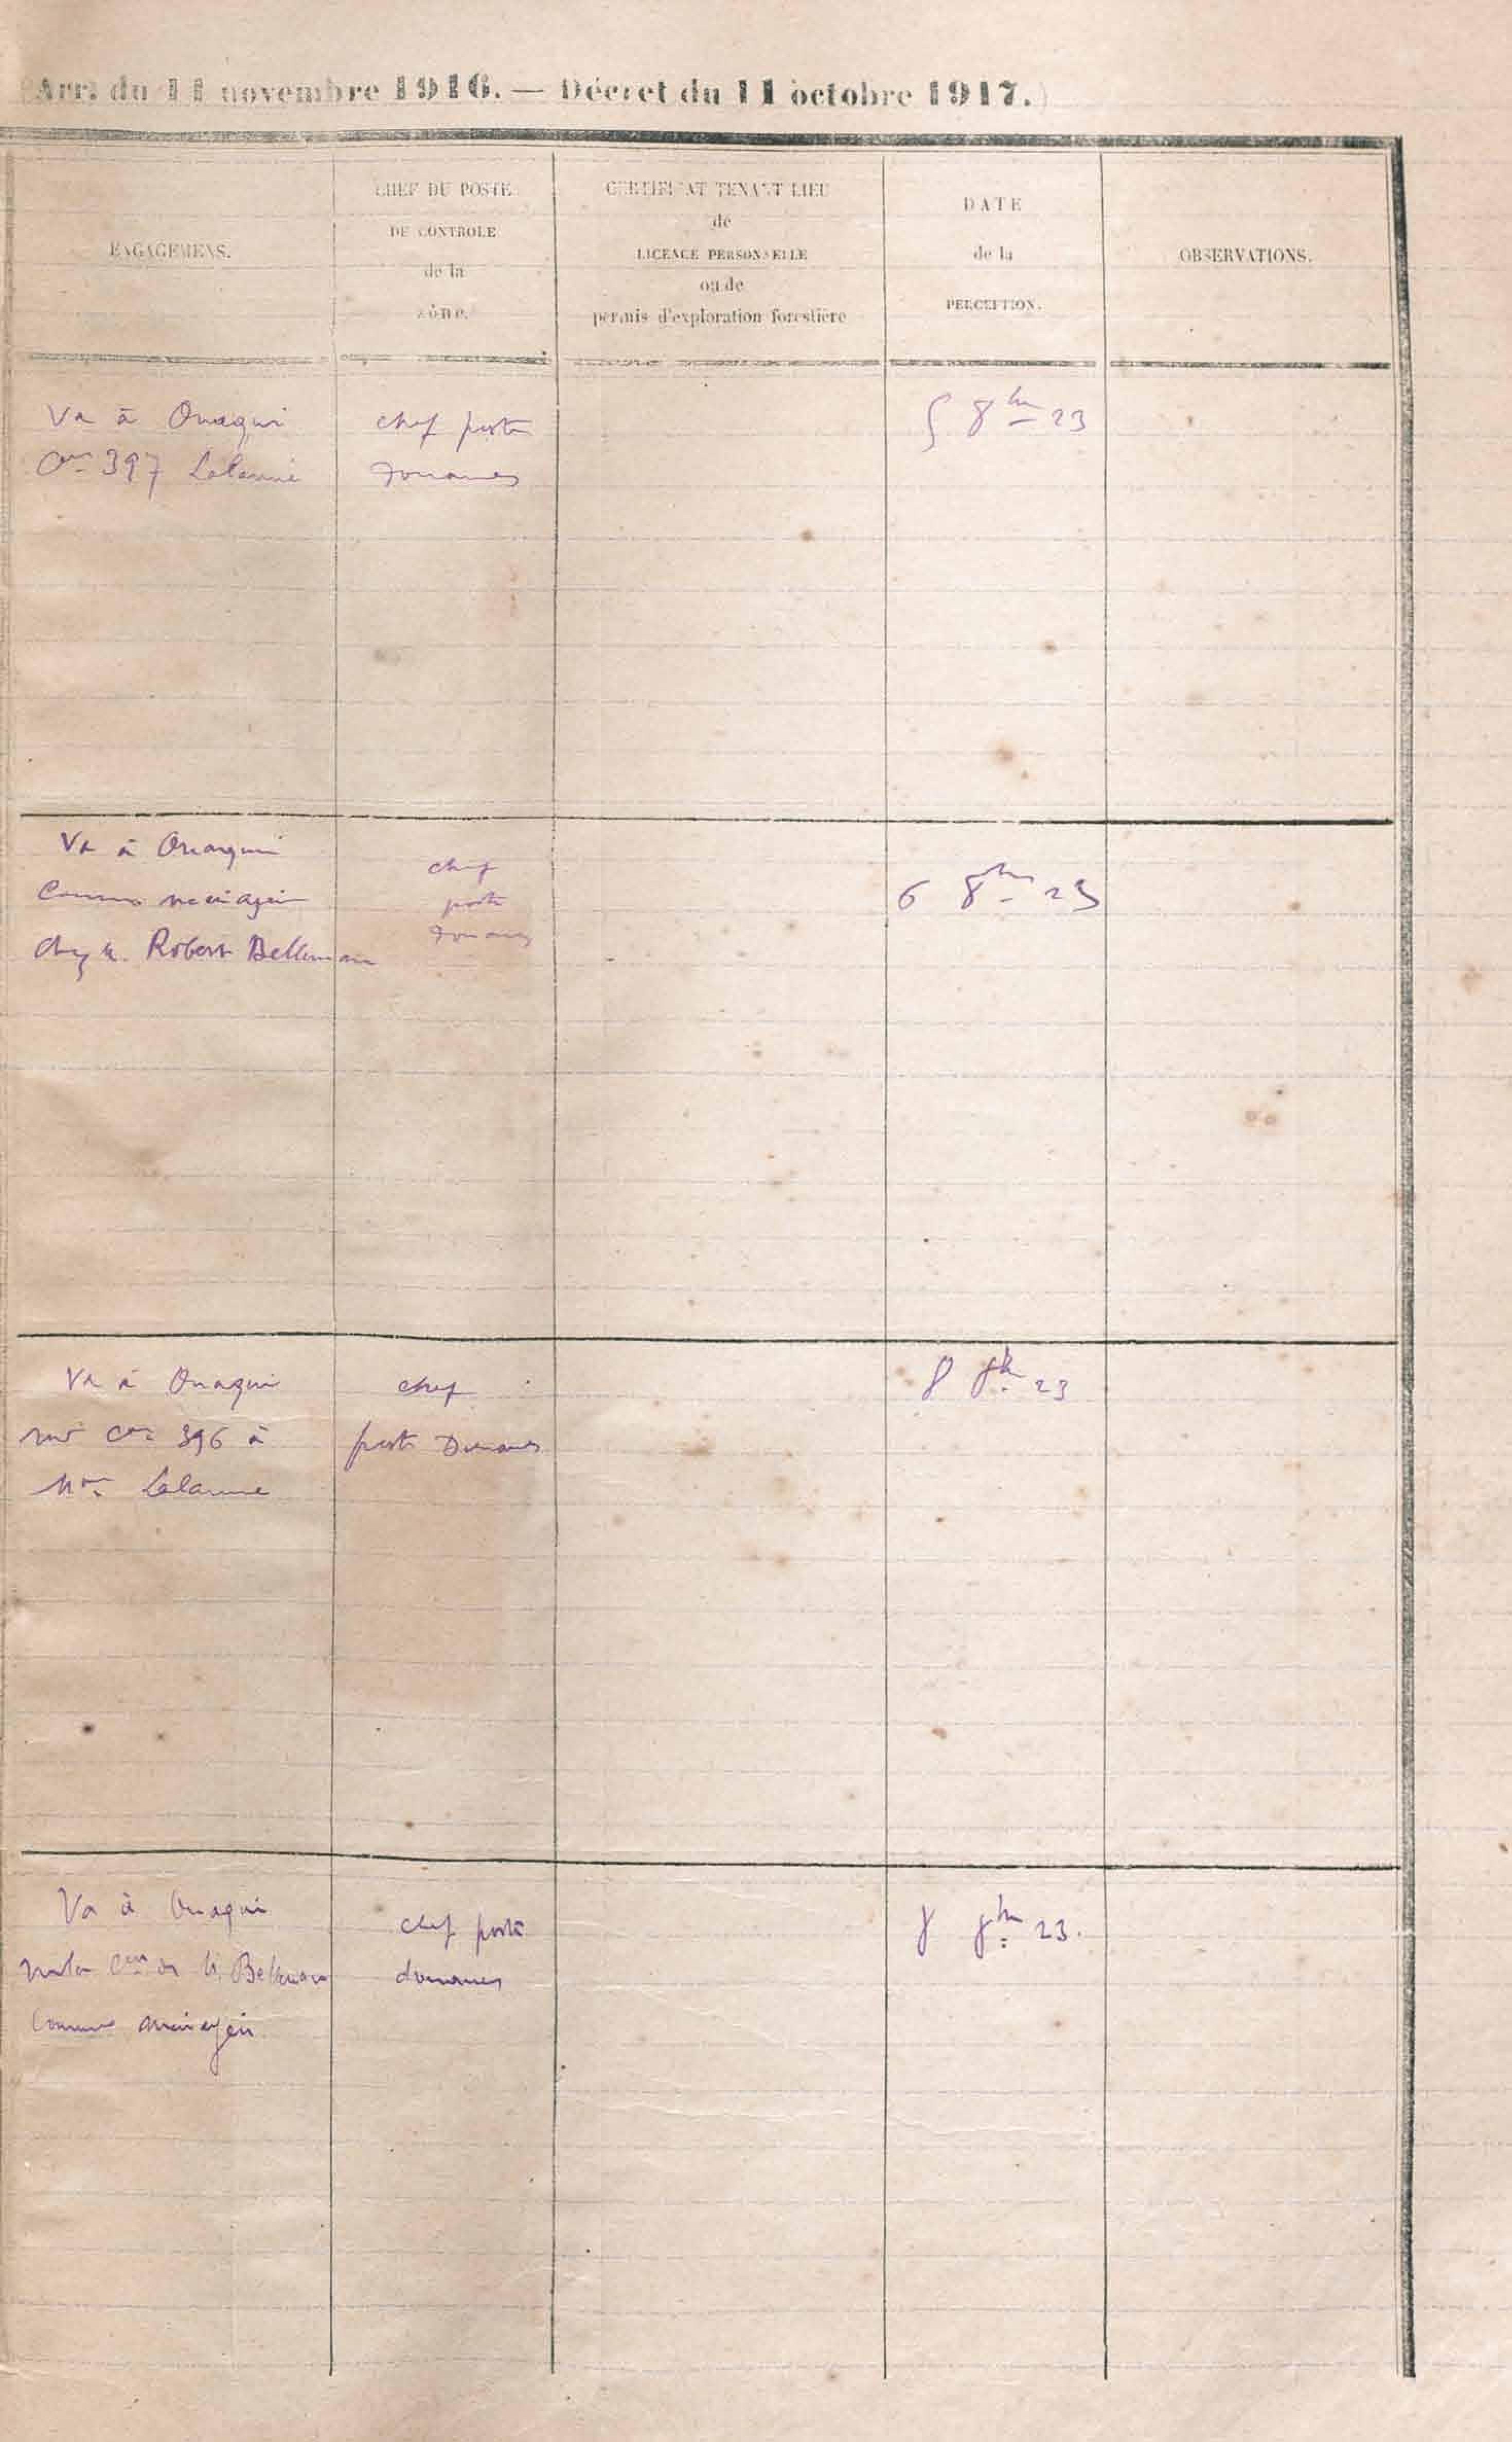 (Arr. du 11 novembre 1916. — Décret du 11 octobre 1917.)
ENGAGEMENS.
CHEF DU POSTE
DE CONTROLE
de la
zône.
CERTIFICAT TENANT LIEU
de
LICENCE PERSONNELLE
ou de
permis d'exploration forestière
DATE
de la
PERCEPTION.
OBSERVATIONS.
Va à Ouaqui
con 397 Lalanne
chef poste
Douanes
5 8bre 23
Va à Ouaqui
Comme ménagère
chez M. Robert Bellemare
chef
poste
Douanes
6 8bre 23
Va à Ouaqui
sur con 396 à
Lalanne
chef
poste Douanes
8 8bre 23
Va à Ouaqui
sur la con de
comme ménagère
chef poste
douanes
8 8bre 23.